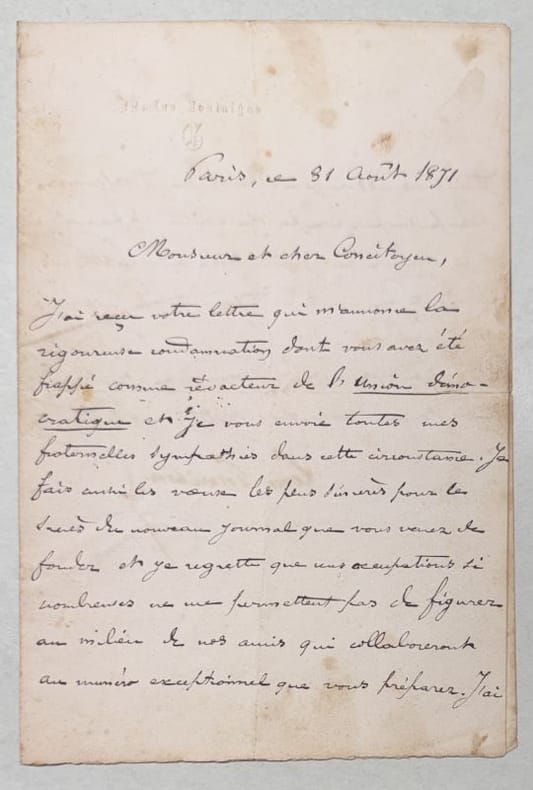 Paris, le 31 Août 1871
Monsieur et cher Concitoyen,
J'ai reçu votre lettre qui m'annonce la
rigoureuse condamnation dont vous avez été
frappé comme rédacteur de l'Union démo-
cratique et je vous envoie toutes mes
fraternelles sympathies dans cette circonstance. Je
fais aussi les vœux les plus sincères pour le
succès du nouveau journal que vous venez de
fonder et je regrette que mes occupations si
nombreuses ne me permettent pas de figurer
au milieu de nos amis qui collaboreront
au numéro exceptionnel que vous préparez. J'ai